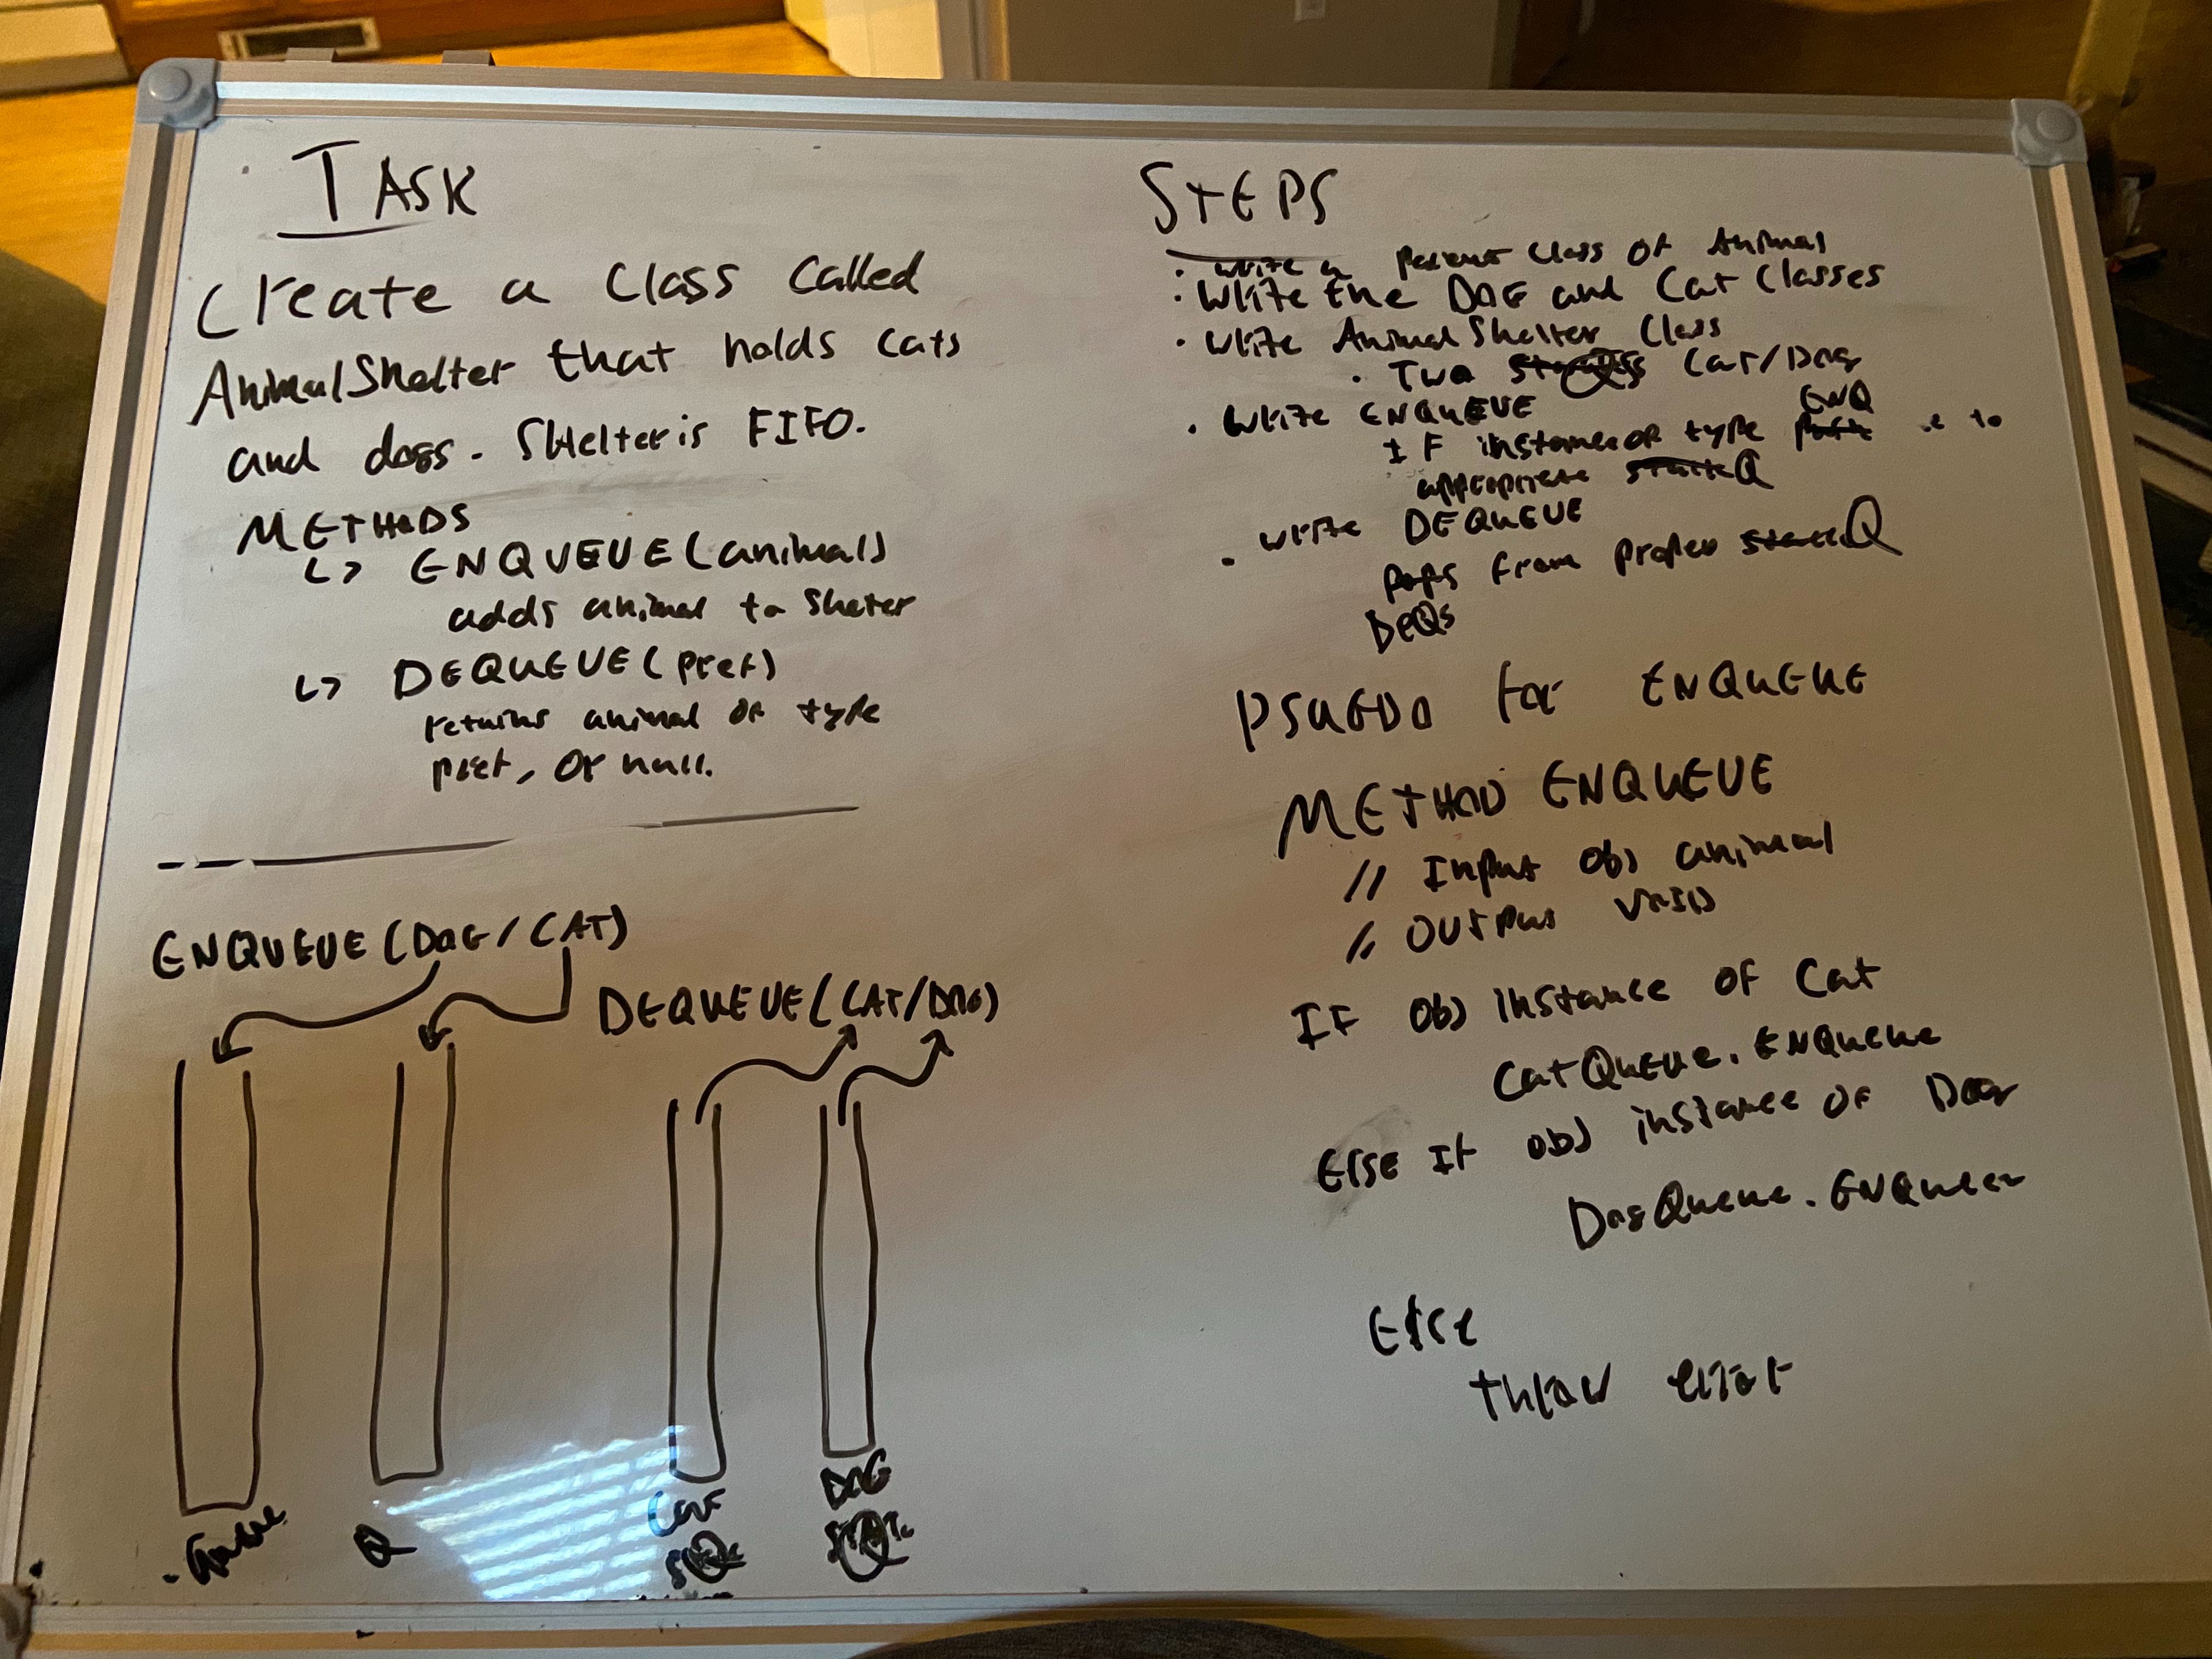 TASK
Create a Class Called
AnimalShelter that holds cats
and dogs. Shelter is FIFO.
METHODS
↳ ENQUEUE(animal)
adds animal to Sheter
↳ DEQUEUE(pref)
returns animal of type
pref, or null.
ENQUEUE(DOG/CAT)
DEQUEUE(CAT/DOG)
Q
Cat
Q
DOG
Q
STEPS
· write a parent Class of Animal
· Write the DOG and Cat Classes
· Write AnimalShelter Class
· Two Qs Cat/Dog
· Write ENQUEUE
ENQ
IF instance of type to
appropriate Q
· write DEQUEUE
Pops from proper Q
DeQs
PSUEDO for ENQUEUE
METHOD ENQUEUE
// Input Obj animal
// OUTPUT VOID
IF Obj instance OF Cat
CatQueue.ENQueue
Else If obj instance OF Dog
DogQueue.ENQueue
Else
throw error